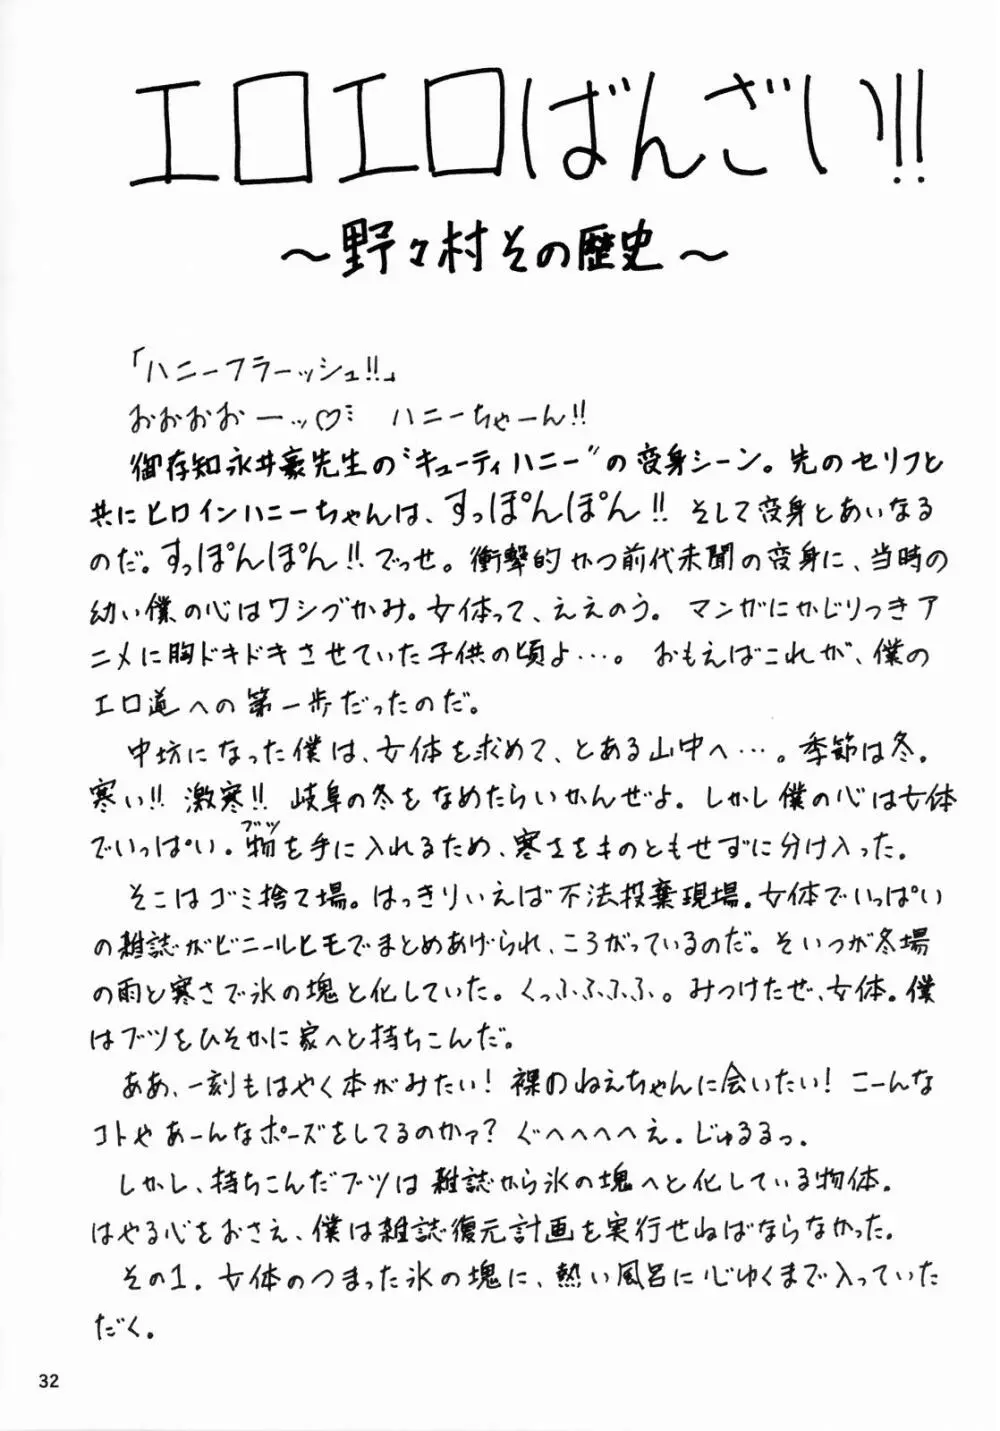 エロエロばんざい!!
～野々村その歴史～
「ハニーフラーッシュ!!」
おぉぉおーッ♡ ハニーちゃーん!!
御存知永井豪先生の“キューティハニー”の変身シーン。先のセリフと
共にヒロインハニーちゃんは、すっぽんぽん!! そして変身とあいなる
のだ。すっぽんぽん!! でっせ。衝撃的かつ前代未聞の変身に、当時の
幼い僕の心はワシづかみ。女体って、ええのう。 マンガにかじりつきア
ニメに胸ドキドキさせていた子供の頃よ…。 おもえばこれが、僕の
エロ道への第一歩だったのだ。
中坊になった僕は、女体を求めて、とある山中へ…。季節は冬。
寒い!! 激寒!! 岐阜の冬をなめたらいかんぜよ。しかし僕の心は女体
でいっぱい。物ブツを手に入れるため、寒さをものともせずに分け入った。
そこはゴミ捨て場。はっきりいえば不法投棄現場。女体でいっぱい
の雑誌がビニールヒモでまとめあげられ、ころがっているのだ。そいつが冬場
の雨と寒さで氷の塊と化していた。くっふふふふ。みつけたぜ、女体。僕
はブツをひそかに家へと持ちこんだ。
ああ、一刻もはやく本がみたい! 裸のねえちゃんに会いたい! こーんな
コトやあーんなポーズをしてるのかァ? ぐへへへへえ。じゅるるっ。
しかし、持ちこんだブツは雑誌から氷の塊へと化している物体。
はやる心をおさえ、僕は雑誌復元計画を実行せねばならなかった。
その1. 女体のつまった氷の塊に、熱い風呂に心ゆくまで入っていた
だく。
32